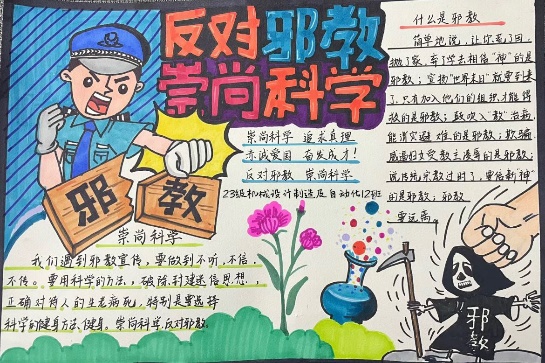 反对邪教
崇尚科学
崇尚科学 追求真理
赤诚爱国 奋发成才!
反对邪教 崇尚科学
23级机械设计制造及自动化12班
邪
教
崇尚科学
我们遇到邪教宣传,要做到不听,不信,
不传。要用科学的方法,破除封建迷信思想,
正确对待人的生老病死,特别是要选择
科学的健身方法健身。崇尚科学反对邪教。
什么是邪教
简单地说,让你丢了
抛了家,弃了学去相信"神"的是
邪教;宣扬"世界末日"就要到来
了,只有加入他们的组织才能得
救的是邪教;鼓吹入"教"治病
能消灾避难的是邪教;欺骗
妇女受教主凌辱的是邪教;
说传统宗教过时了,要信新"神"
的是邪教;邪教
要远离。
邪
教